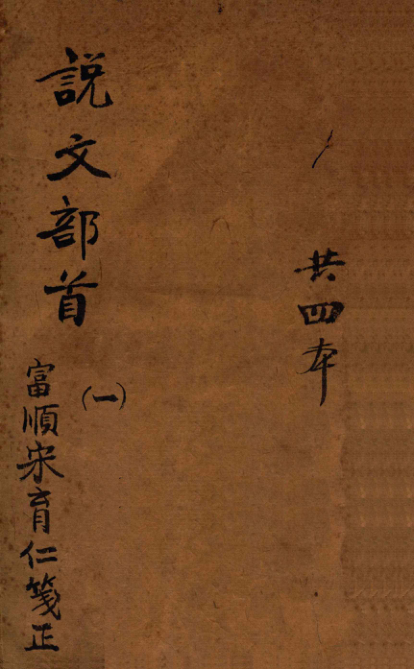 共四本
說文部首
(一)
富順宋育仁箋正